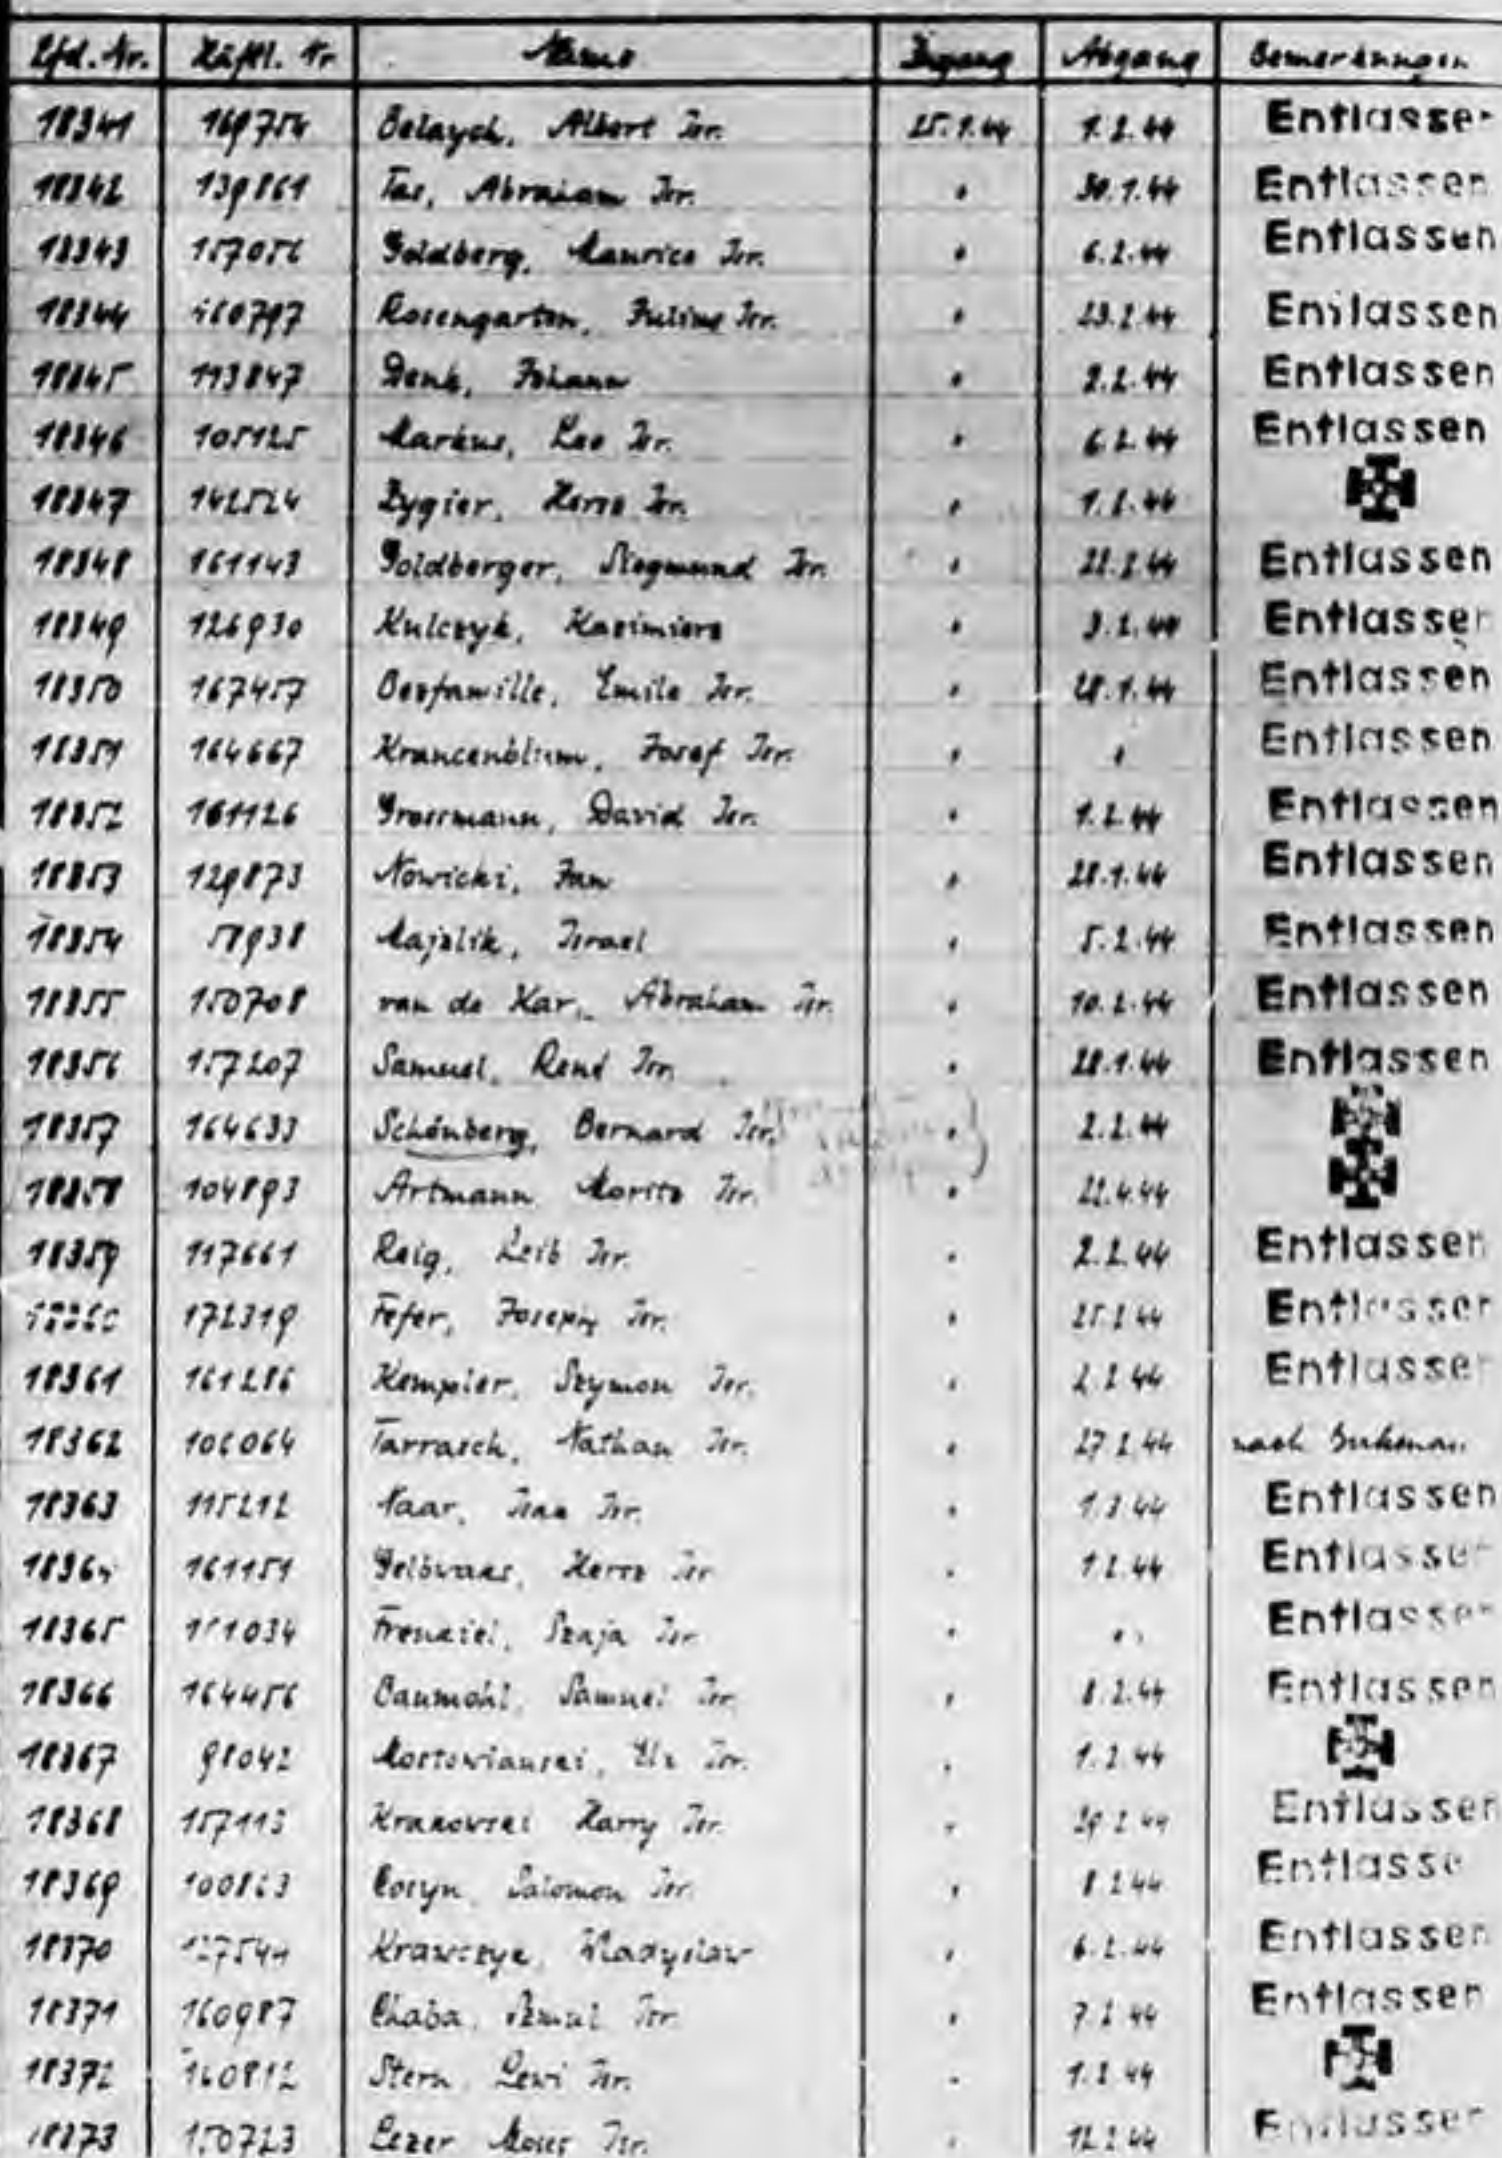 Lfd. Nr. Häftl. Nr. Name Zugang Abgang Bemerkungen
18341 169754 Belaych, Albert Isr. 25.1.44 1.2.44 Entlassen
18342 139861 Tas, Abraham Isr. " 30.1.44 Entlassen
18343 157056 Goldberg, Maurice Isr. " 6.2.44 Entlassen
18344 160797 Rosengarten, Julius Isr. " 23.2.44 Entlassen
18345 113847 Denk, Johann " 2.2.44 Entlassen
18346 105125 Markus, Leo Isr. " 6.2.44 Entlassen
18347 142524 Zygier, Hersz Isr. " 1.2.44
18348 161143 Goldberger, Siegmund Isr. " 22.2.44 Entlassen
18349 126930 Kulczyk, Kazimierz " 3.2.44 Entlassen
18350 167457 Besfamille, Emile Isr. " 28.1.44 Entlassen
18351 164667 Krancenblum, Josef Isr. " " Entlassen
18352 161126 Grossmann, David Isr. " 1.2.44 Entlassen
18353 129873 Nowicki, Jan " 28.1.44 Entlassen
18354 Majzlik, Israel " 5.2.44 Entlassen
18355 150708 van de Kar, Abraham Isr. " 10.2.44 Entlassen
18356 157207 Samuel, René Isr. " 28.1.44 Entlassen
18357 164633 Schönberg, Bernard Isr. " 2.2.44
18358 104893 Artmann Moritz Isr. " 22.4.44
18359 117661 Raig, Leib Isr. " 2.2.44 Entlassen
172319 Fefer, Joseph Isr. " 25.2.44 Entlassen
18361 161286 Kempler, Szymon Isr. " 2.2.44 Entlassen
18362 106064 Tarrasch, Nathan Isr. " 27.2.44 nach Birkenau
18363 115212 Naar, Isr. " Entlassen
18364 161151 Gelbwaks, Hersz Isr " 1.2.44 Entlassen
18365 161034 Szaja Isr " " Entlassen
18366 164456 Baumohl, Samuel Isr. " 8.2.44 Entlassen
18367 98042 Isr. " 1.2.44
18368 157113 Krakowski Harry Isr. " 29.2.44 Entlassen
18369 Cosyn, Salomon Isr. " 8.2.44 Entlassen
18370 127544 Krawczyk, Wladyslaw " 6.2.44 Entlassen
18371 160987 Chaba, Szmul Isr. " 7.2.44 Entlassen
18372 Stern, Lewi Isr. " 1.2.44
18373 150723 Lezer Moses Isr. " 12.2.44 Entlassen